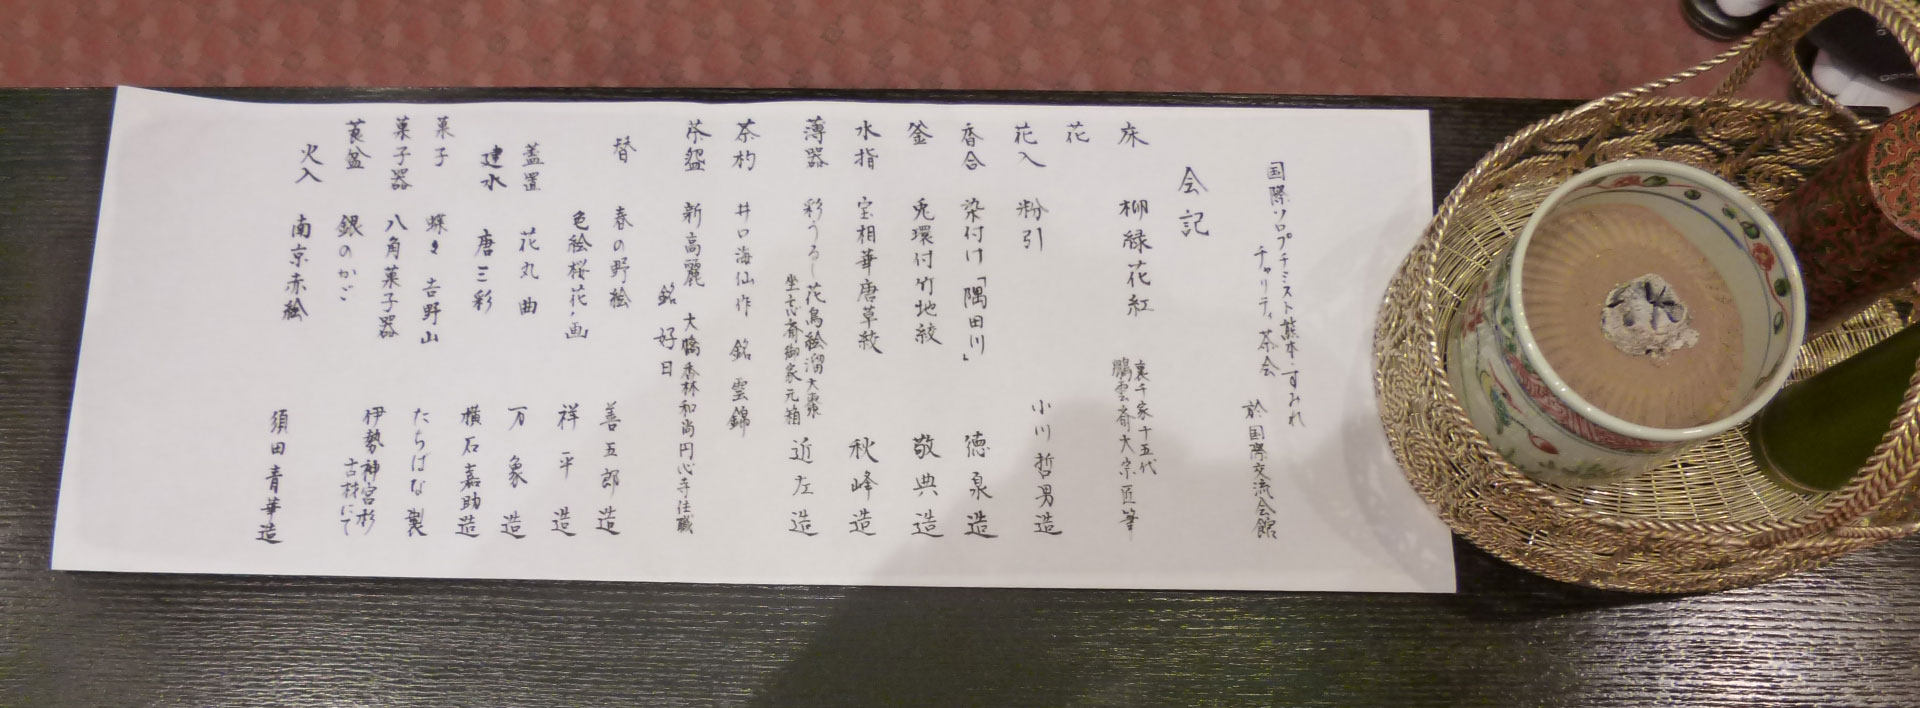 国際ソロプチミスト熊本・すみれ
チャリティ茶会
於 国際交流会館
会記
床 柳緑花紅 裏千家十五代
鵬雲斎大宗匠筆
花
花入 粉引 小川哲男造
香合 染付け「隅田川」 徳泉造
釜 兎環付竹地紋 敬典造
水指 宝相華唐草紋 秋峰造
薄器 彩うるし花鳥絵溜大棗
坐忘斎御家元箱 近左造
茶杓 井口海仙作 銘 雲錦
茶盌 新高麗 大橋香林和尚円心寺住職
銘 好日
替 春の野絵 善五郎造
色絵桜花ノ画 祥平造
蓋置 花丸曲 万象造
建水 唐三彩 横石嘉助造
菓子 蝶々 吉野山 たちばな製
菓子器 八角菓子器 伊勢神宮杉
古材にて
莨盆 銀のかご
火入 南京赤絵 須田青華造